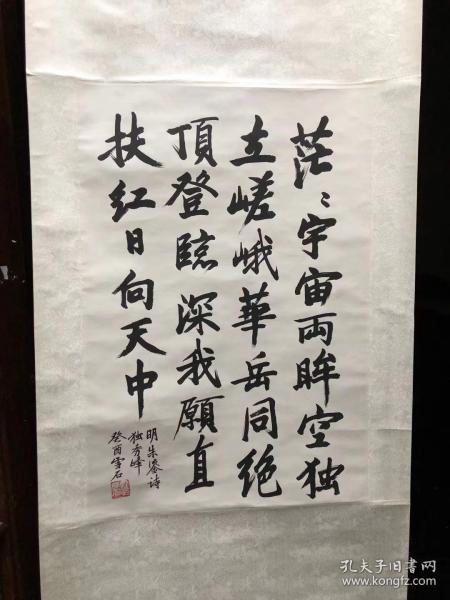 茫〻宇宙両眸空独
立嵯峨華岳同绝
頂登臨深我願直
扶红日向天中
明朱 诗
独秀峰
癸酉雪石
孔夫子旧书网
www.kongfz.com